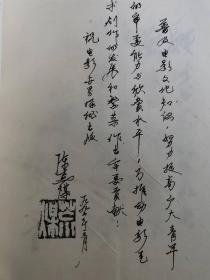 普及电影文化知识，努力提高广大青年
的审美能力与欣赏水平，为推动电影艺
术创作的发展和繁荣作出重要贡献！
祝电影
出版
陈荒煤
一九九〇年五月
荒煤